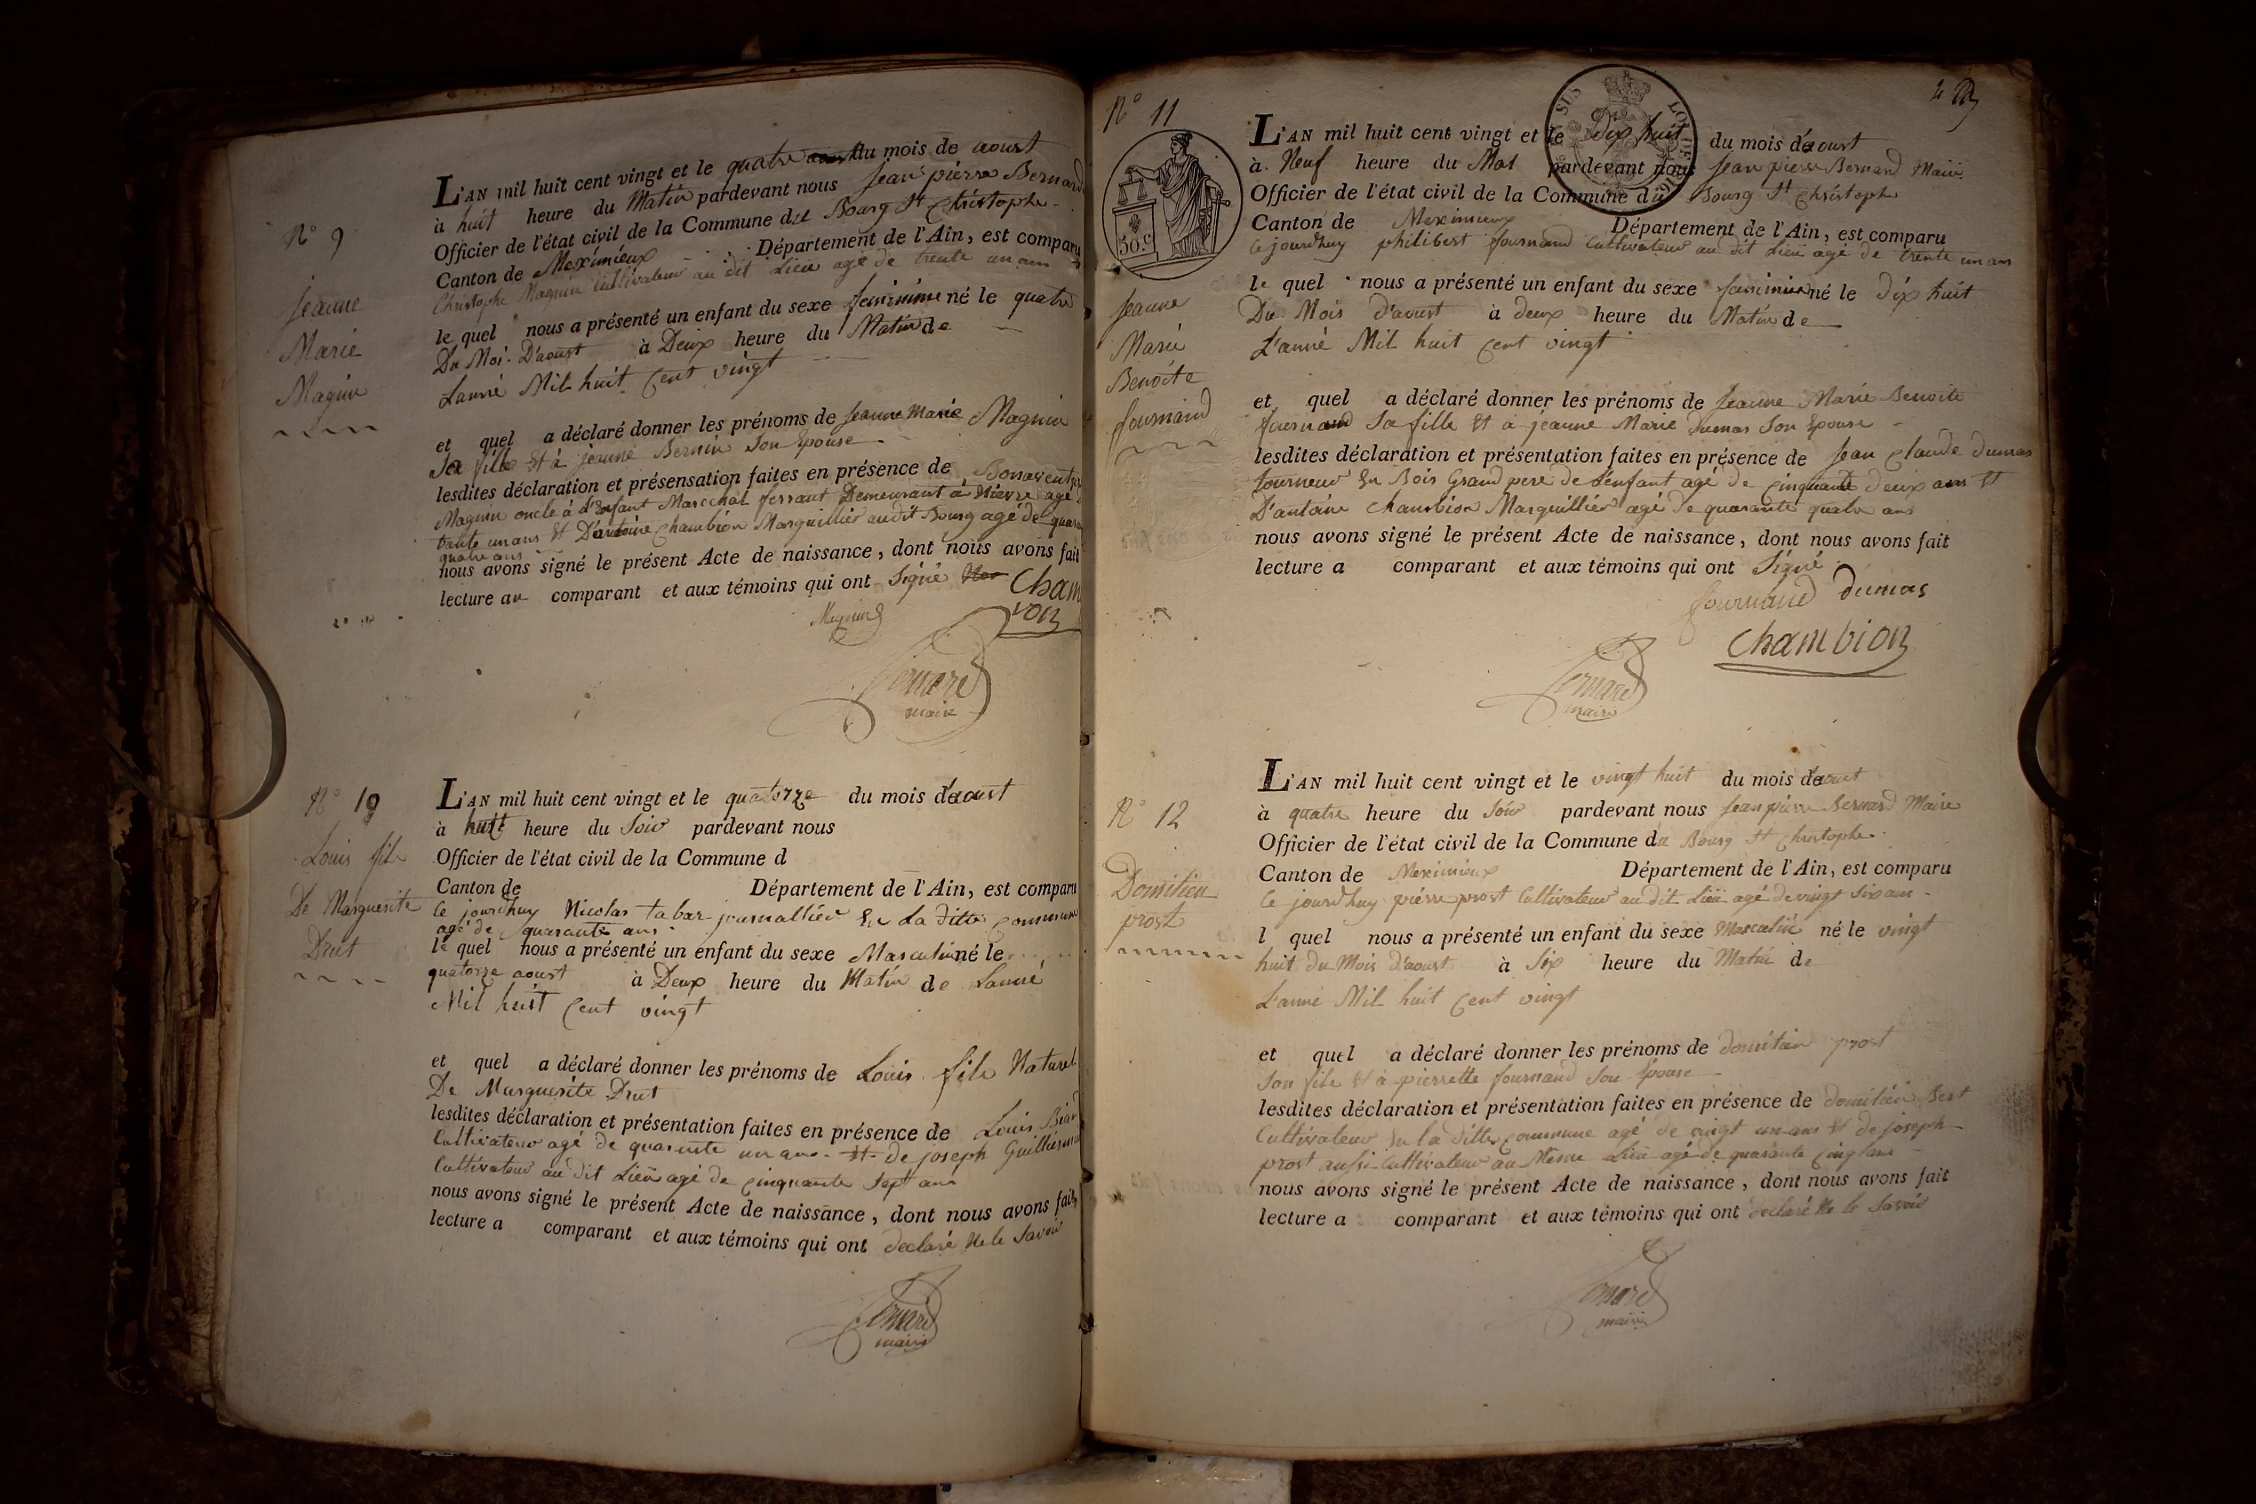 N° 9
Jeanne
Marie
Magnin
L'AN mil huit cent vingt et le quatre du mois de aoust
à huit heure du Matin pardevant nous jean pierre Bernard
Officier de l'état civil de la Commune du Bourg St Christophe
Canton de Meximieux Département de l'Ain, est comparu
Christophe Magnin Cultivateur au dit Lieu agé de trente un ans
le quel nous a présenté un enfant du sexe feminime né le quatre
Du Moi D'aoust à Deux heure du Matin de
Lanné Mil huit Cent vingt
et quel a déclaré donner les prénoms de jeanne Marie Magnin
Sa fille Et à jeanne Bernin Son Epouse
lesdites déclaration et présensation faites en présence de Bonaventure
Magnin oncle à L'Enfant Marechal ferrant Demeurant à agé
trante un ans Et D'antoine Chambion Marguillier au dit Bourg agé de quara
quatre ans
nous avons signé le présent Acte de naissance, dont nous avons fait
lecture au comparant et aux témoins qui ont Signé
Cham
vion
Magnin
Bernard
maire
N° 10
Louis fils
De Marguerite
Drut
L'AN mil huit cent vingt et le quatorze du mois d'aoust
à huit heure du Soir pardevant nous
Officier de l'état civil de la Commune d
Canton de Département de l'Ain, est comparu
Ce jourdhuy Nicolas tabar journallier En La ditte Commune
agé de quarante ans
le quel nous a présenté un enfant du sexe Masculin né le
quatorze aoust à Deux heure du Matin de Lanné
Mil huit Cent vingt
et quel a déclaré donner les prénoms de Louis fils Naturel
De Marguerite Drut
lesdites déclaration et présentation faites en présence de Louis
Cultivateur agé de quarante un ans Et de joseph
Cultivateur au dit Lieu agé de cinquante Sept ans
nous avons signé le présent Acte de naissance, dont nous avons fait
lecture a comparant et aux témoins qui ont declaré Ne le Savoir
Bernard
maire
N° 11
50 c.
Jeanne
Marie
Benoite
fournand
L'AN mil huit cent vingt et le Dix huit du mois d'aoust
à Neuf heure du Mat pardevant nous jean pierre Bernard Maire
Officier de l'état civil de la Commune du Bourg St Christophe
Canton de Meximieux Département de l'Ain, est comparu
Ce jourdhuy philibert fournand Cultivateur au dit Lieu agé de trente un ans
le quel nous a présenté un enfant du sexe feminim né le dix huit
Du Mois D'aoust à deux heure du Matin de
L'anné Mil huit Cent vingt
et quel a déclaré donner les prénoms de jeanne Marie Benoite
fournand Sa fille Et à jeanne Marie Dumas Son Epouse
lesdites déclaration et présentation faites en présence de jean Claude dumas
tourneur En Bois Grand pere de L'enfant agé de cinquante deux ans Et
D'antoine Chambion Marguillier agé de quarante quatre ans
nous avons signé le présent Acte de naissance, dont nous avons fait
lecture a comparant et aux témoins qui ont Signé
fournand dumas
Chambion
Bernard
maire
N° 12
Domitien
prost
L'AN mil huit cent vingt et le vingt huit du mois d'aoust
à quatre heure du Soir pardevant nous jean pierre Bernard Maire
Officier de l'état civil de la Commune du Bourg St Christophe
Canton de Meximieux Département de l'Ain, est comparu
Ce jourdhuy pierre prost Cultivateur au dit Lieu agé de vingt Six ans
l quel nous a présenté un enfant du sexe Masculin né le vingt
huit du Mois D'aoust à Six heure du Matin de
L'anné Mil huit Cent vingt
et quel a déclaré donner les prénoms de domitien prost
Son fils Et à pierrette fournand Son Epouse
lesdites déclaration et présentation faites en présence de domitien
Cultivateur En la ditte Commune agé de vingt un ans Et de joseph
prost aussi Cultivateur au Meme Lieu agé de quarante Cinq ans
nous avons signé le présent Acte de naissance, dont nous avons fait
lecture a comparant et aux témoins qui ont declaré Ne le Savoir
Bernard
maire